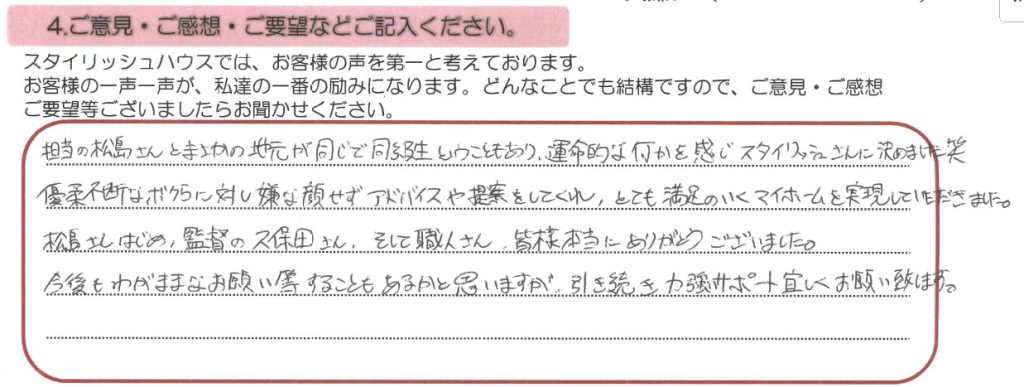 4.ご意見・ご感想・ご要望などご記入ください。
スタイリッシュハウスでは、お客様の声を第一と考えております。
お客様の一声一声が、私達の一番の励みになります。どんなことでも結構ですので、ご意見・ご感想
ご要望等ございましたらお聞かせください。
担当の松島さんとまさかの地元が同じで同級生ということもあり、運命的な何かを感じスタイリッシュさんに決めました笑
優柔不断なボクらに対し嫌な顔せずアドバイスや提案をしてくれ、とても満足のいくマイホームを実現していただきました。
松島さんはじめ、監督の久保田さん、そして職人さん、皆様本当にありがとうございました。
今後もわがままなお願い等することもあるかと思いますが、引き続き力強サポート宜しくお願い致します。